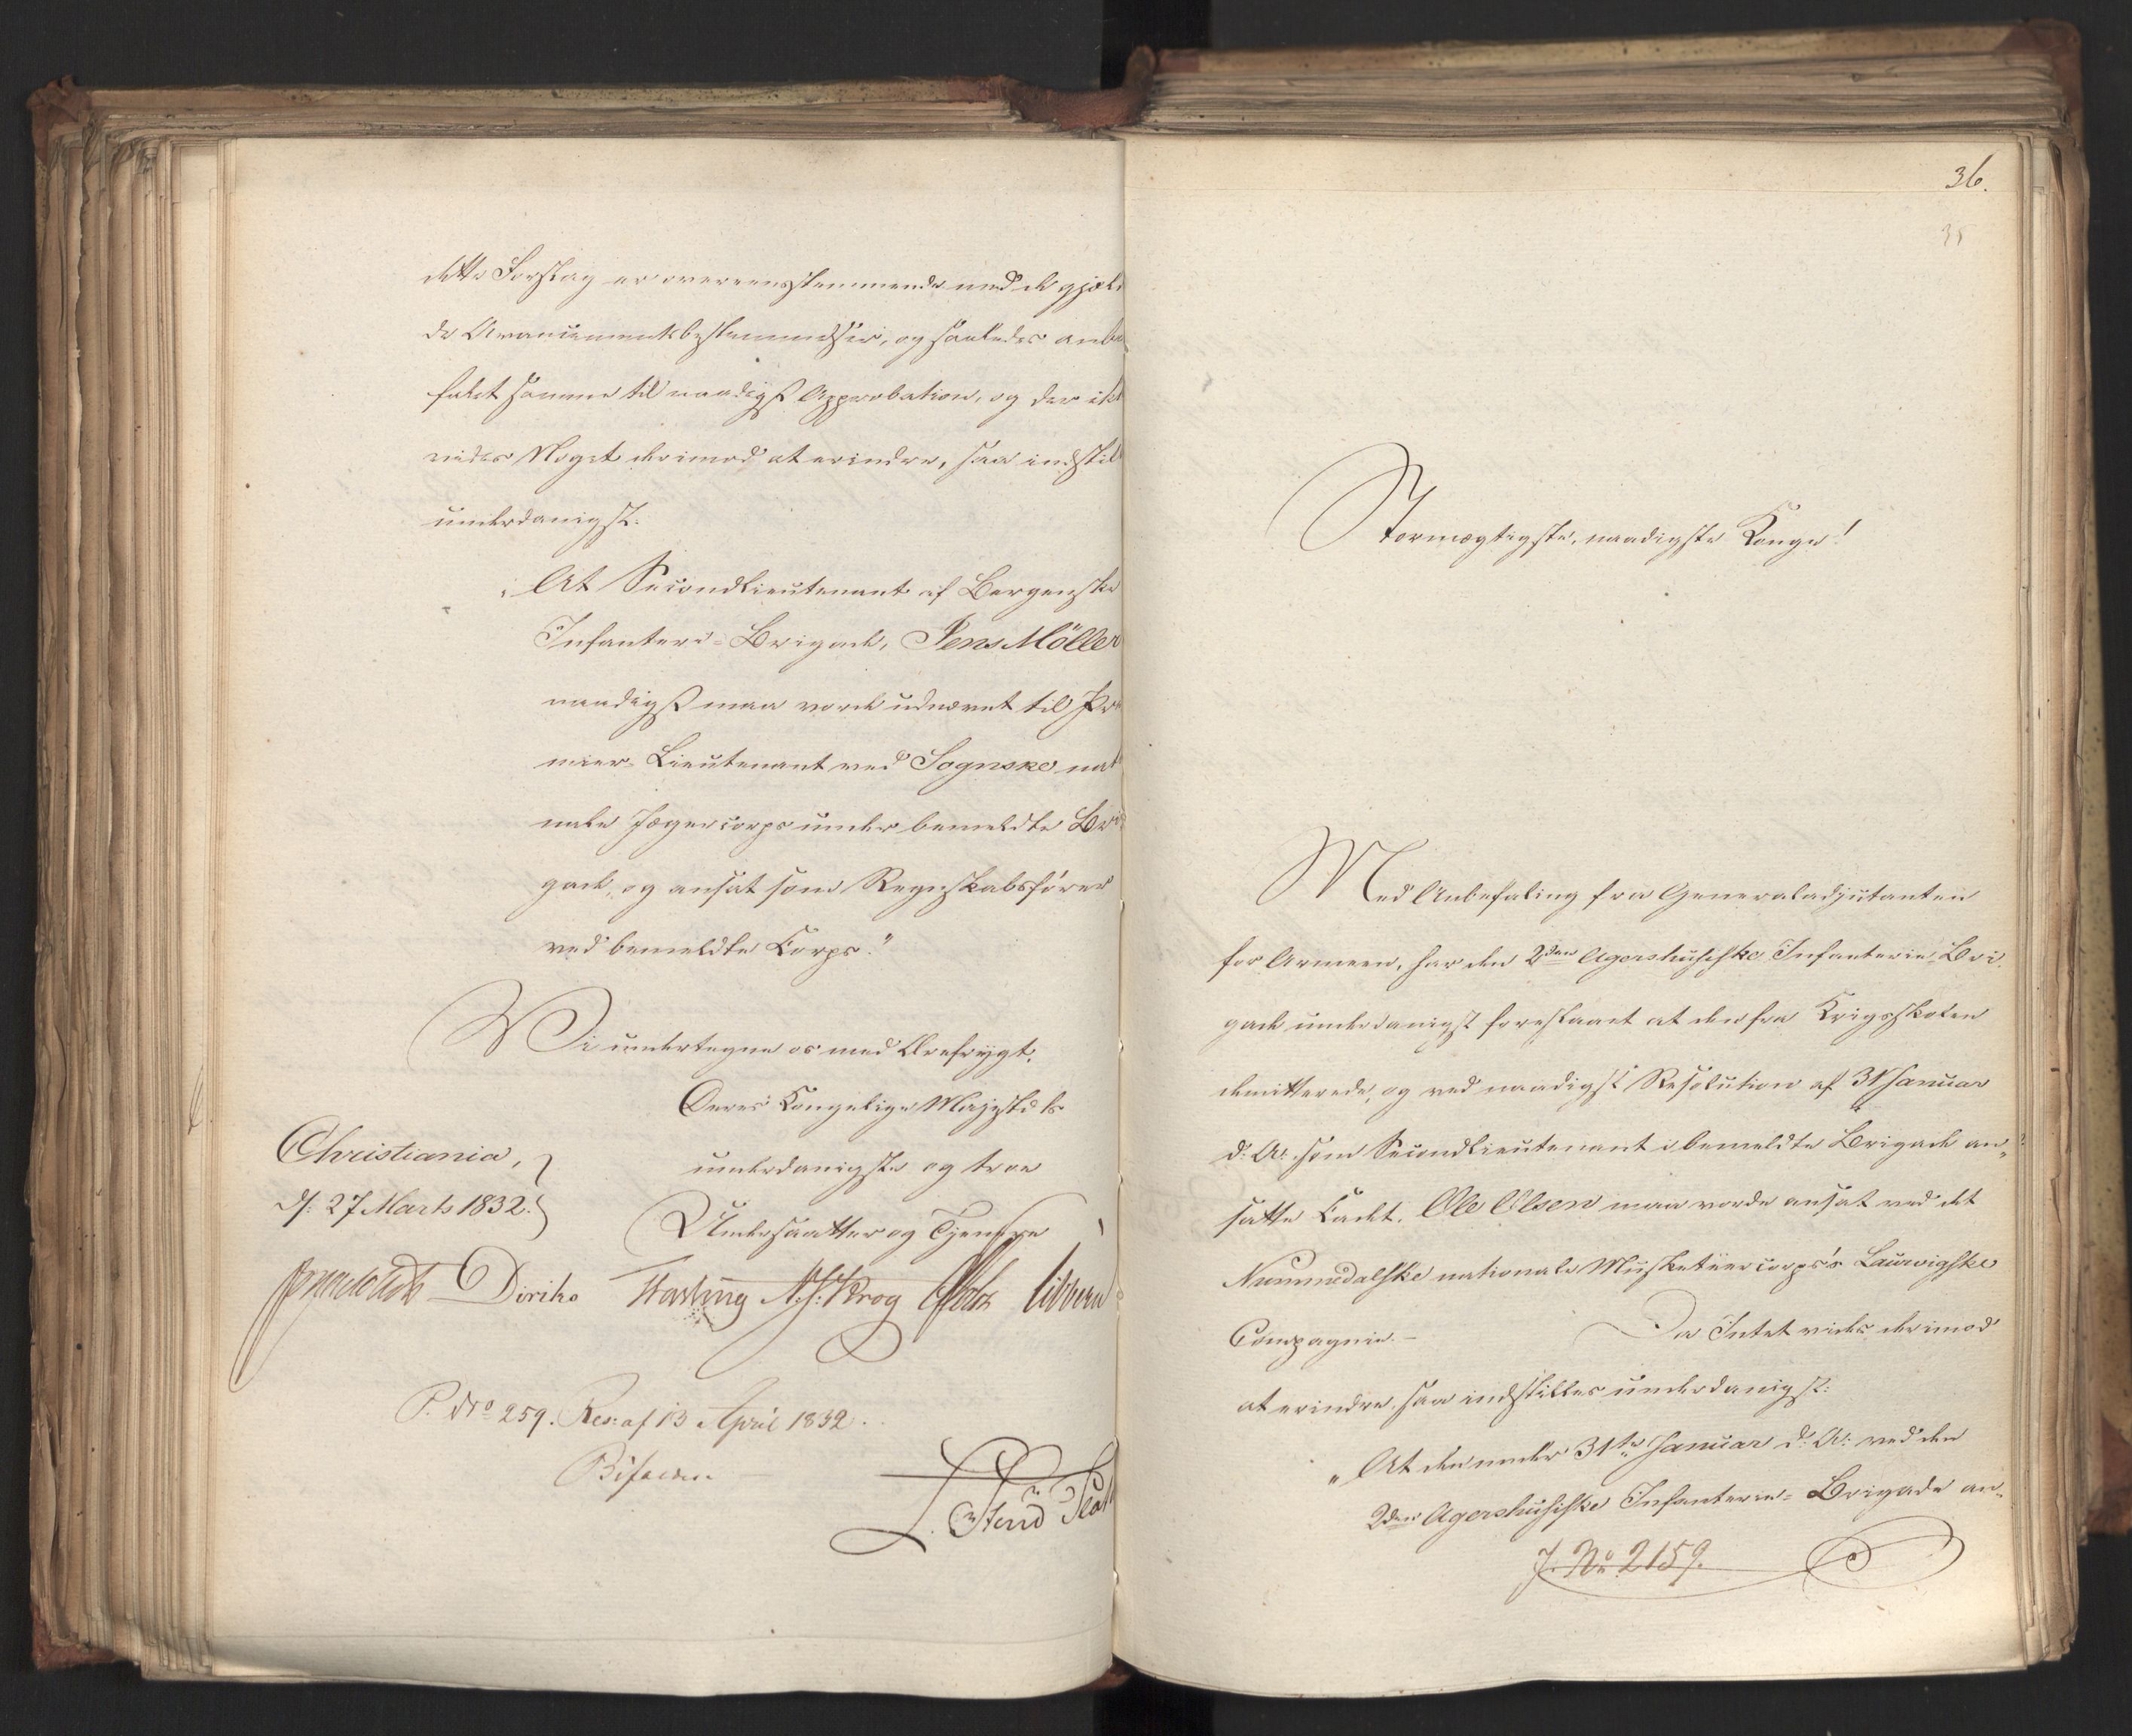 dette Forslag er overeensstemmende med de gjæl
de Avancementsbestemmelser, og saaledes anbe
falet samme til naadigst Approbation, og der ikk
vides Noget derimod at erindre, saa indstill
underdanigst:
„At Secondlieutenant af Bergenske
Infanteri-Brigade, Jens Möller
naadigst maa vorde udnævnt til Pre
mier-Lieutenant ved Sognske nat
nale Jægercorps under bemeldte Bri
gade, og ansat som Regnskabsfører
ved bemeldte Corps."
Vi undertegne os med Ærefrygt,
Deres Kongelige Majestæts
underdanigste og troe
Undersaatter og Tjenere
Christiania,
d: 27 Marts 1832.
Diriks Hasthung N. J. Krog Holst Sibbern
P. No 259. Res: af 13 April 1832.
Bifaldes.
36.
35
Stormægtigste, naadigste Konge!
Med Anbefaling fra Generaladjutanten
for Armeen, har den 2den Agershusiske Infanterie-Bri
gade underdanigst foreslaaet at den fra Krigsskolen
demitterede, og ved naadigst Resolution af 31 Januar
d: A: som Secondlieutenant i bemeldte Brigade an„
satte Cadet, Ole Olsen maa vorde ansat ved det
Nummedalske nationale Musketeercorps's Laurvigske
Compagnie. – Da Intet vides derimod
at erindre, saa indstilles underdanigst:
„At den under 31te Januar d: A: ved den
2den Agershusiske Infanterie-Brigade an„
J. No 2159.